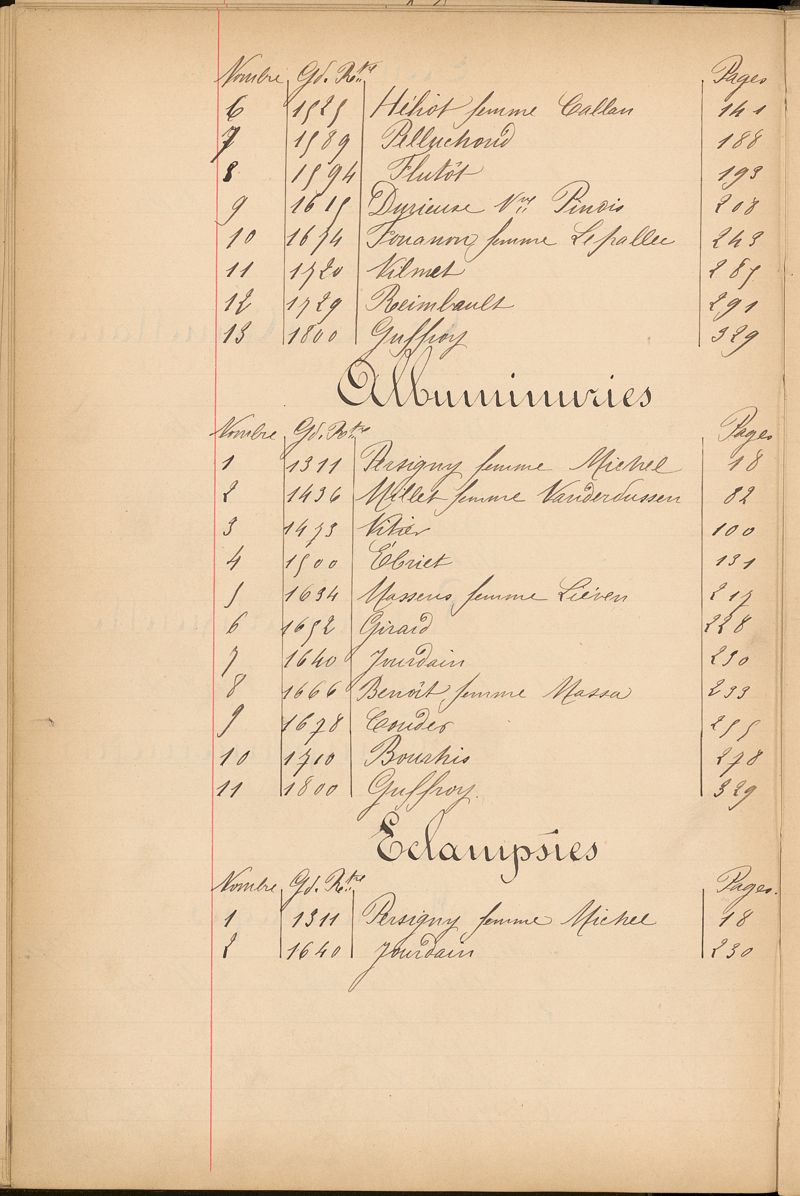 Nombre Gd. Rtre Pages
6 1525 Héliot femme Callan 141
7 1589 Pelluchoud 188
8 1594 Flutôt 193
9 1615 Durieuse Vve 208
10 1674 Fouanon femme Lepallec 243
11 1720 Vilmet 285
12 1729 Reimbault 291
13 1800 Guffroy 329
Albuminuries
Nombre Gd. Rtre Pages
1 1311 Persigny femme Michel 18
2 1436 Millet femme Vanderdussen 82
3 1473 100
4 1500 Ébriet 131
5 1634 Massens femme Liéven 217
6 1652 Girard 228
7 1640 Jourdain 230
8 1666 Benoît femme Massa 233
9 1678 Couder 255
10 1710 Bourhis 278
11 1800 Guffroy. 329
Eclampsies
Nombre Gd. Rtre Pages.
1 1311 Persigny femme Michel 18
2 1640 Jourdain 230